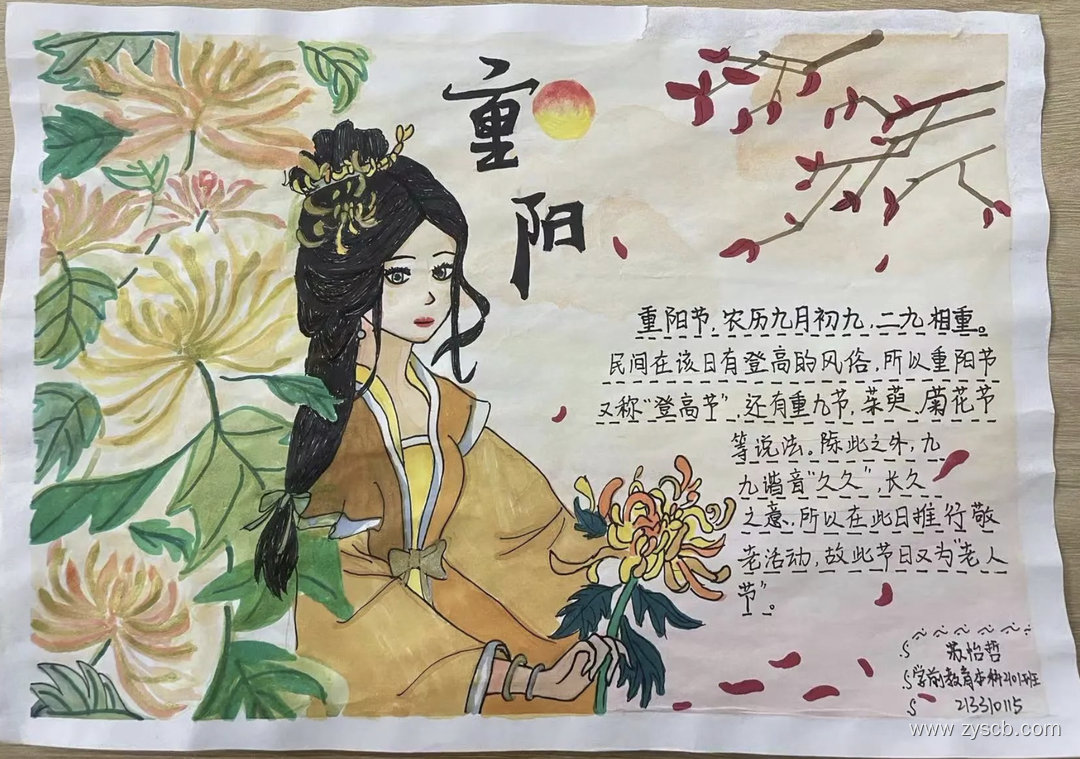 重
阳
重阳节，农历九月初九，二九相重。
民间在该日有登高的风俗，所以重阳节
又称“登高节”，还有重九节，茱萸，菊花节
等说法。除此之外，九
九谐音“久久”，长久
之意，所以在此日推行敬
老活动，故此节日又为“老人
节”。
苏怡哲
学前教育本科2101班
213310115
www.zyscb.com